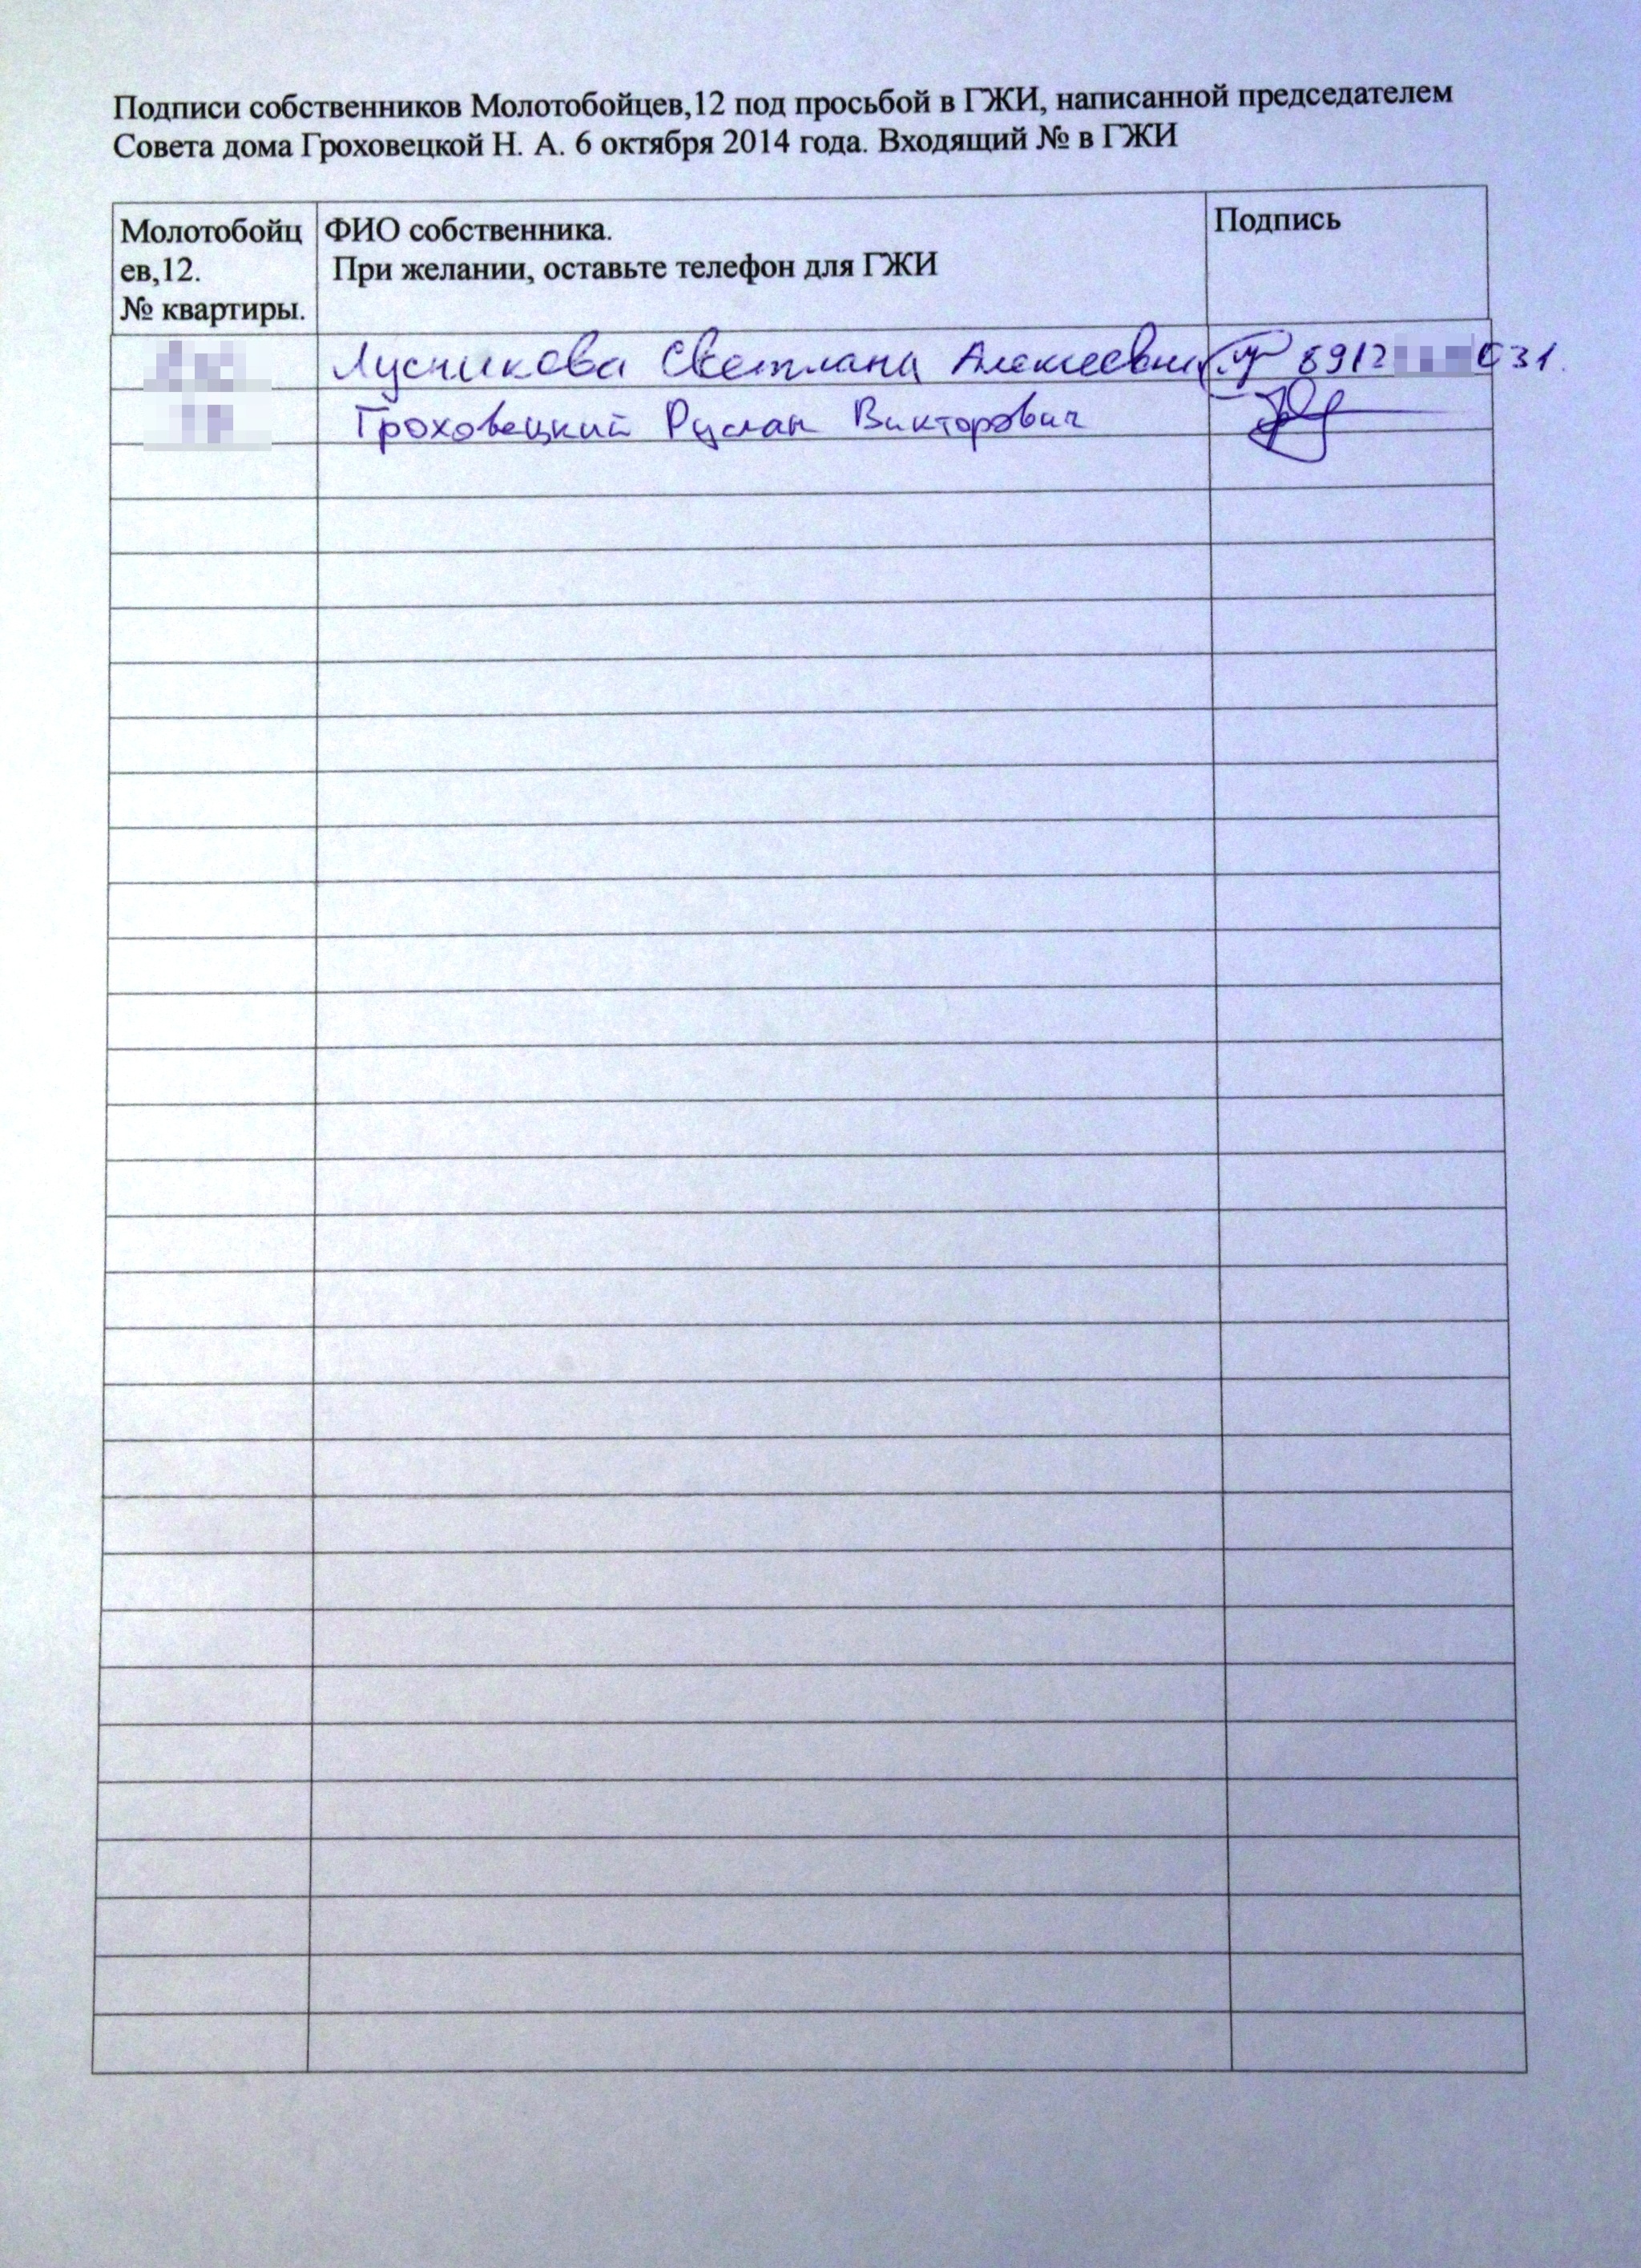 Подписи собственников Молотобойцев,12 под просьбой в ГЖИ, написанной председателем
Совета дома Гроховецкой Н. А. 6 октября 2014 года. Входящий № в ГЖИ
Молотобойц
ев,12.
№ квартиры.
ФИО собственника.
При желании, оставьте телефон для ГЖИ
Подпись
Лусникова Светлана Алексеевна 8912 031.
Гроховецкий Руслан Викторович